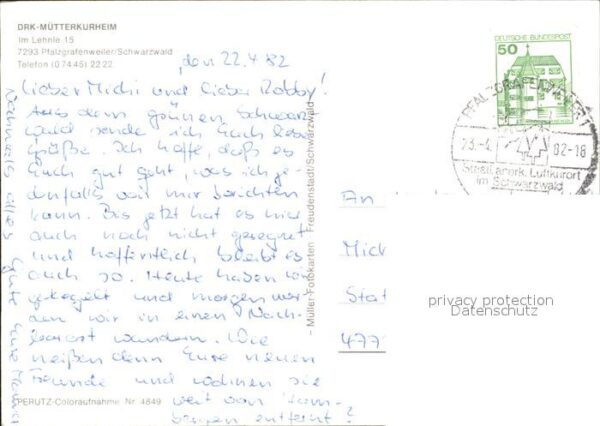 DRK-MÜTTERKURHEIM
Im Lehnle 15
7293 Pfalzgrafenweiler/Schwarzwald
Telefon (0 74 45) 22 22
den 22.4.82
Lieber Michi und lieber Robby!
Aus dem grünen Schwarz
wald sende ich Euch liebe
Grüße. Ich hoffe, daß es
Euch gut geht, was ich je-
denfalls von mir berichten
kann. Bis jetzt hat es hier
auch noch nicht geregnet
und hoffentlich bleibt es
auch so. Heute haben wir
gekegelt und morgen wer-
den wir in einen Nach-
barort wandern. Wie
heißen denn Eure neuen
Freunde und wohnen sie
weit von
entfernt?
Nochmals alles Gute Eure
PERUTZ-Coloraufnahme Nr. 4849
– Müller-Fotokarten – Freudenstadt/Schwarzwald
DEUTSCHE BUNDESPOST
50
PFALZGRAFENWEILER
23.-4. 82-18
Staatl. anerk. Luftkurort
im Schwarzwald
An
Mich
Stat
477
privacy protection
Datenschutz